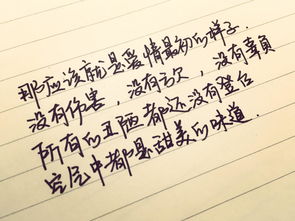 那应该就是爱情最初的样子.
没有伤害，没有亏欠，没有辜负
所有的丑陋都还没有登台
空气中都是甜美的味道.